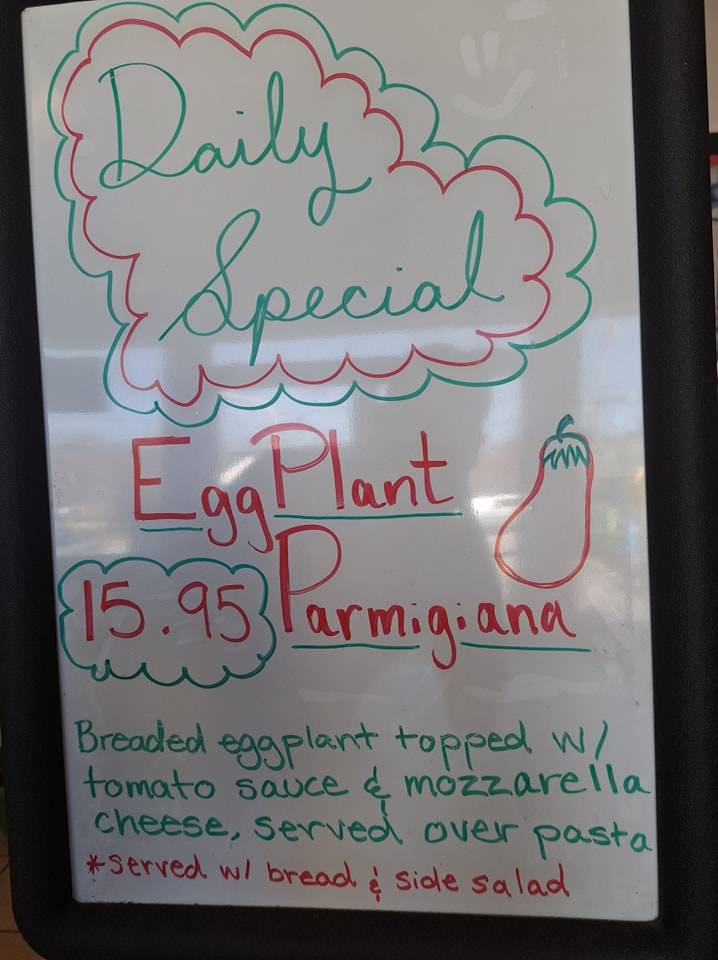 Daily
Special
EggPlant
15.95 Parmigiana
Breaded eggplant topped w/
tomato sauce & mozzarella
cheese, served over pasta
*served w/ bread & side salad